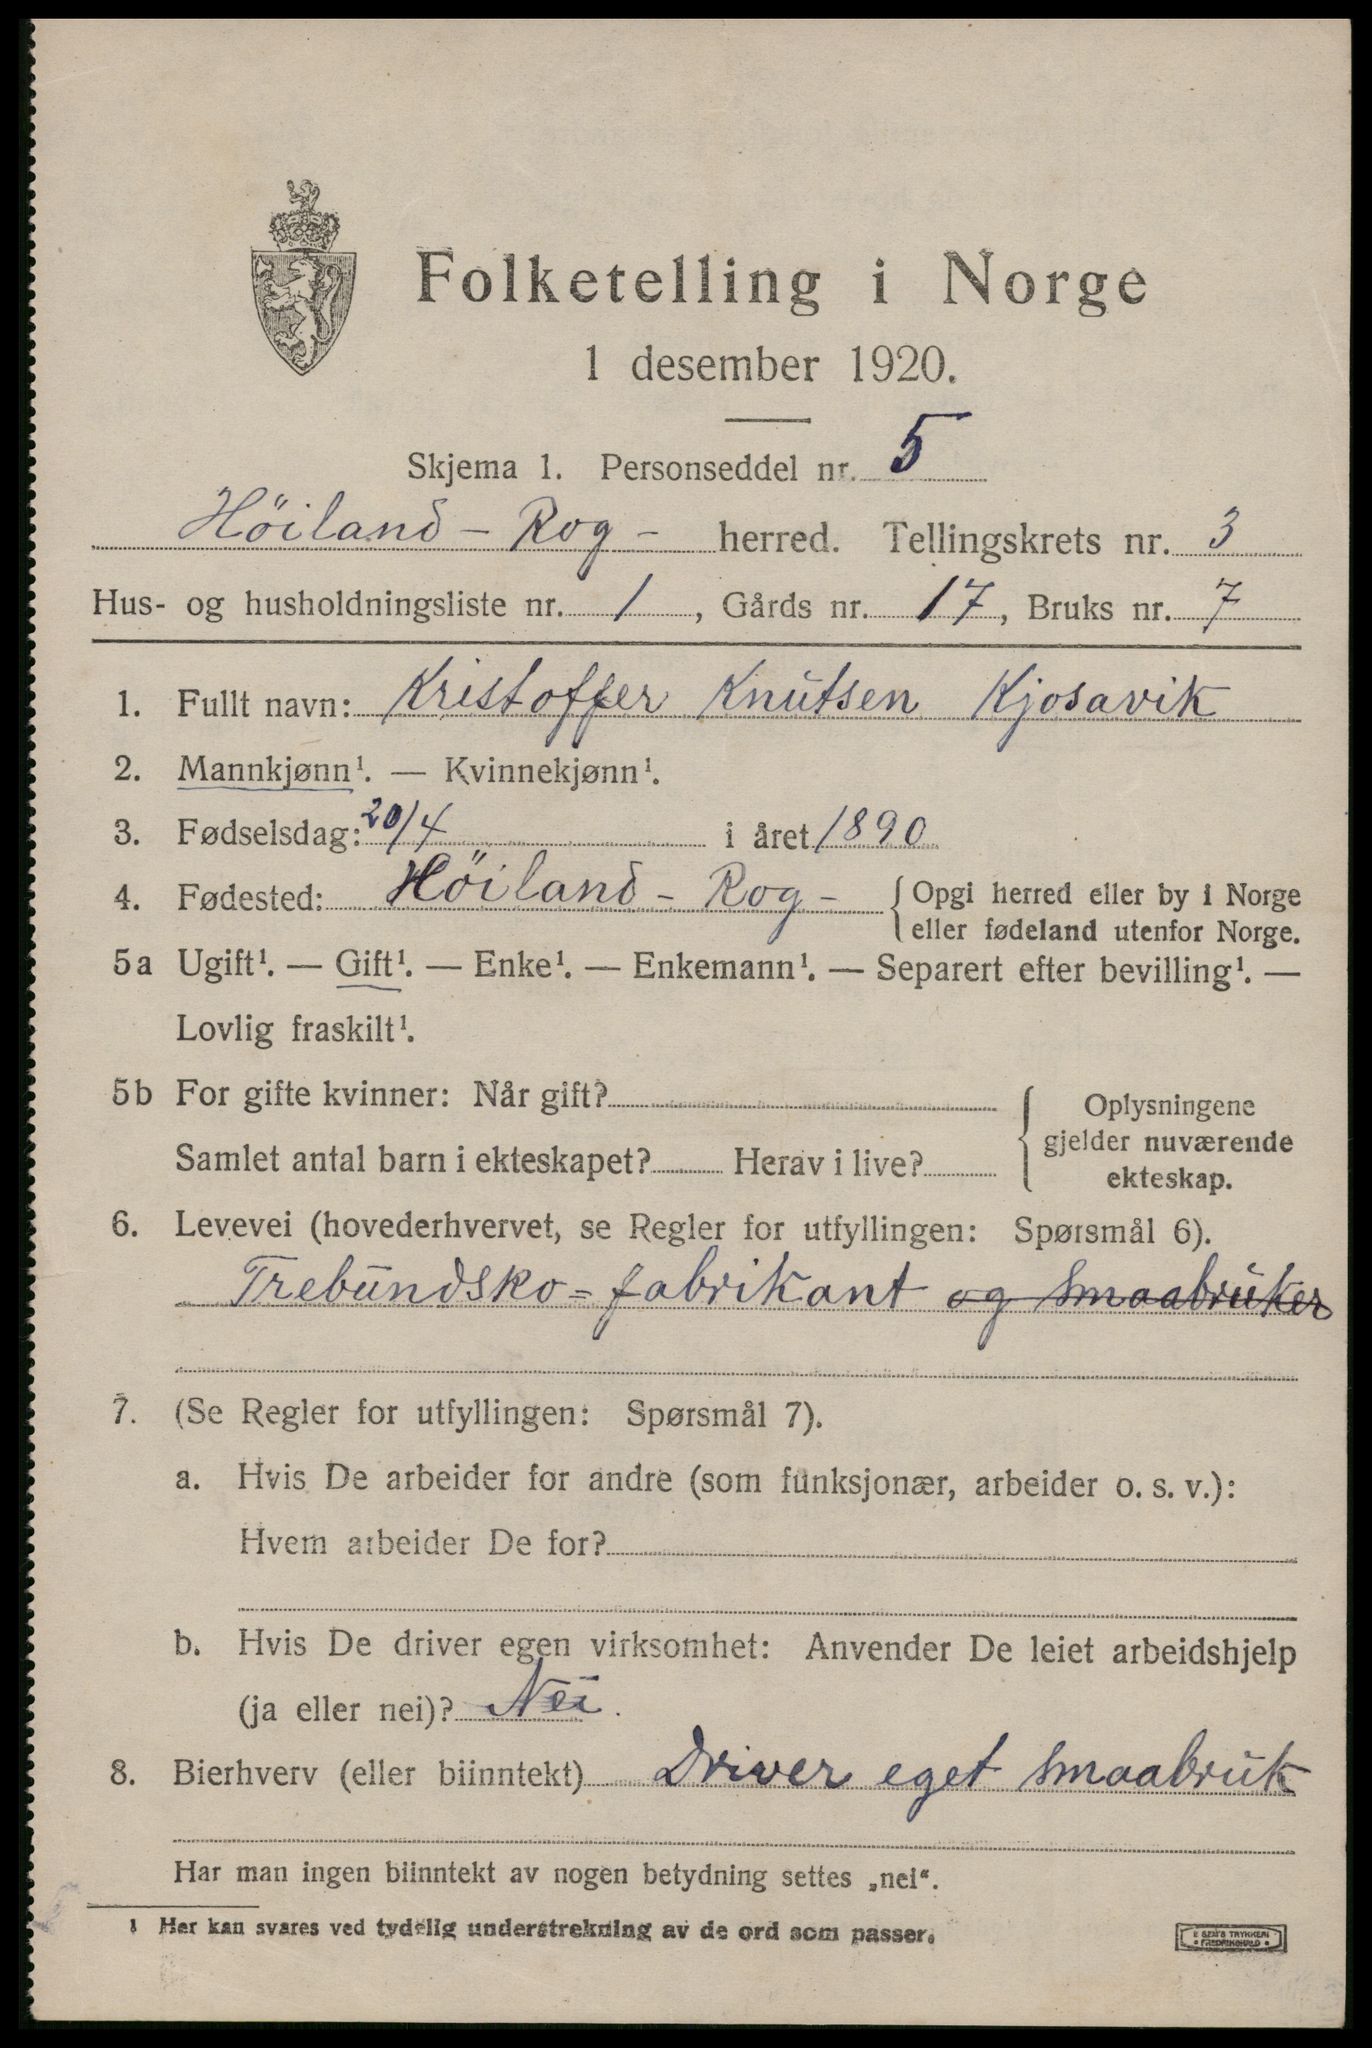 Folketelling i Norge
1 desember 1920.
Skjema 1. Personseddel nr. 5
Höiland - Rog - herred. Tellingskrets nr. 3
Hus- og husholdningsliste nr. 1, Gårds nr. 17, Bruks nr. 7
1. Fullt navn: Kristoffer Knutsen Kjosavik
2. Mannkjønn¹. — Kvinnekjønn¹.
3. Fødselsdag: 20/4 i året 1890
4. Fødested: Höiland - Rog - { Opgi herred eller by i Norge
eller fødeland utenfor Norge.
5a Ugift¹. — Gift¹. — Enke¹. — Enkemann¹. — Separert efter bevilling¹. —
Lovlig fraskilt¹.
5b For gifte kvinner: Når gift? { Oplysningene
gjelder nuværende
Samlet antal barn i ekteskapet? Herav i live?
ekteskap.
6. Levevei (hovederhvervet, se Regler for utfyllingen: Spørsmål 6).
Trebundsko=fabrikant og smaabruker
7. (Se Regler for utfyllingen: Spørsmål 7).
a. Hvis De arbeider for andre (som funksjonær, arbeider o. s. v.):
Hvem arbeider De for?
b. Hvis De driver egen virksomhet: Anvender De leiet arbeidshjelp
(ja eller nei)? Nei.
8. Bierhverv (eller biinntekt) Driver eget smaabruk
Har man ingen biinntekt av nogen betydning settes „nei“.
1 Her kan svares ved tydelig understrekning av de ord som passer.
E SEM'S TRYKKERI
• FREDRIKSHALD •